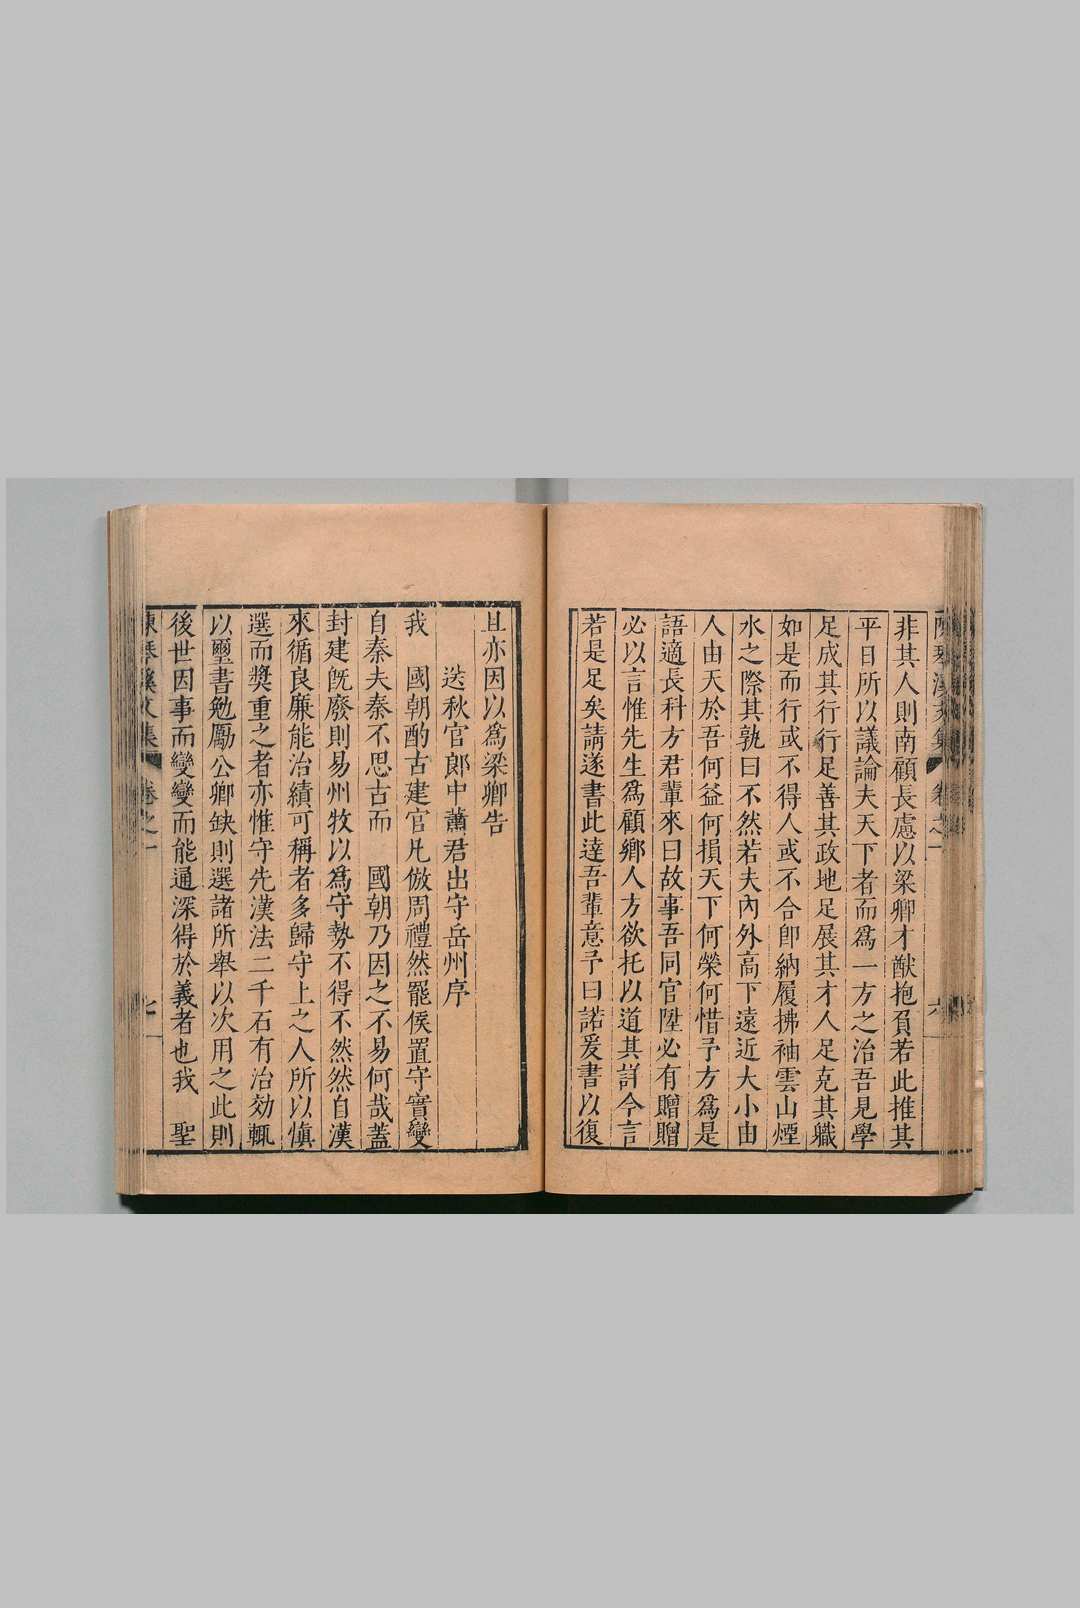 非其人則南顧長慮以梁卿才猷抱負若此推其
平日所以議論夫天下者而爲一方之治吾見學
足成其行行足善其政地足展其才人足克其職
如是而行或不得人或不合卽納履拂袖雲山煙
水之際其孰曰不然若夫內外高下遠近大小由
人由天於吾何益何損天下何榮何惜予方爲是
語適長科方君輩來曰故事吾同官陞必有贈贈
必以言惟先生爲顧鄉人方欲托以道其詳今言
若是足矣請遂書此達吾輩意予曰諾爰書以復
且亦因以爲梁卿告
送秋官郎中蕭君出守岳州序
我　國朝酌古建官凡倣周禮然罷侯置守實變
自秦夫秦不思古而　國朝乃因之不易何哉蓋
封建旣廢則易州牧以爲守勢不得不然然自漢
來循良廉能治績可稱者多歸守上之人所以愼
選而獎重之者亦惟守先漢法二千石有治効輒
以璽書勉勵公卿缺則選諸所舉以次用之此則
後世因事而變變而能通深得於義者也我　聖
陳琴溪文集　卷之一　七